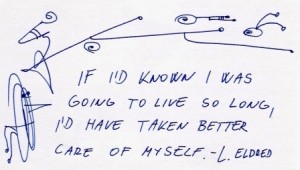 IF I'D KNOWN I WAS
GOING TO LIVE SO LONG,
I'D HAVE TAKEN BETTER
CARE OF MYSELF. -L. ELDRED